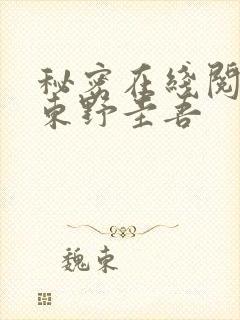 秘密在线阅
东野圭吾
魏东